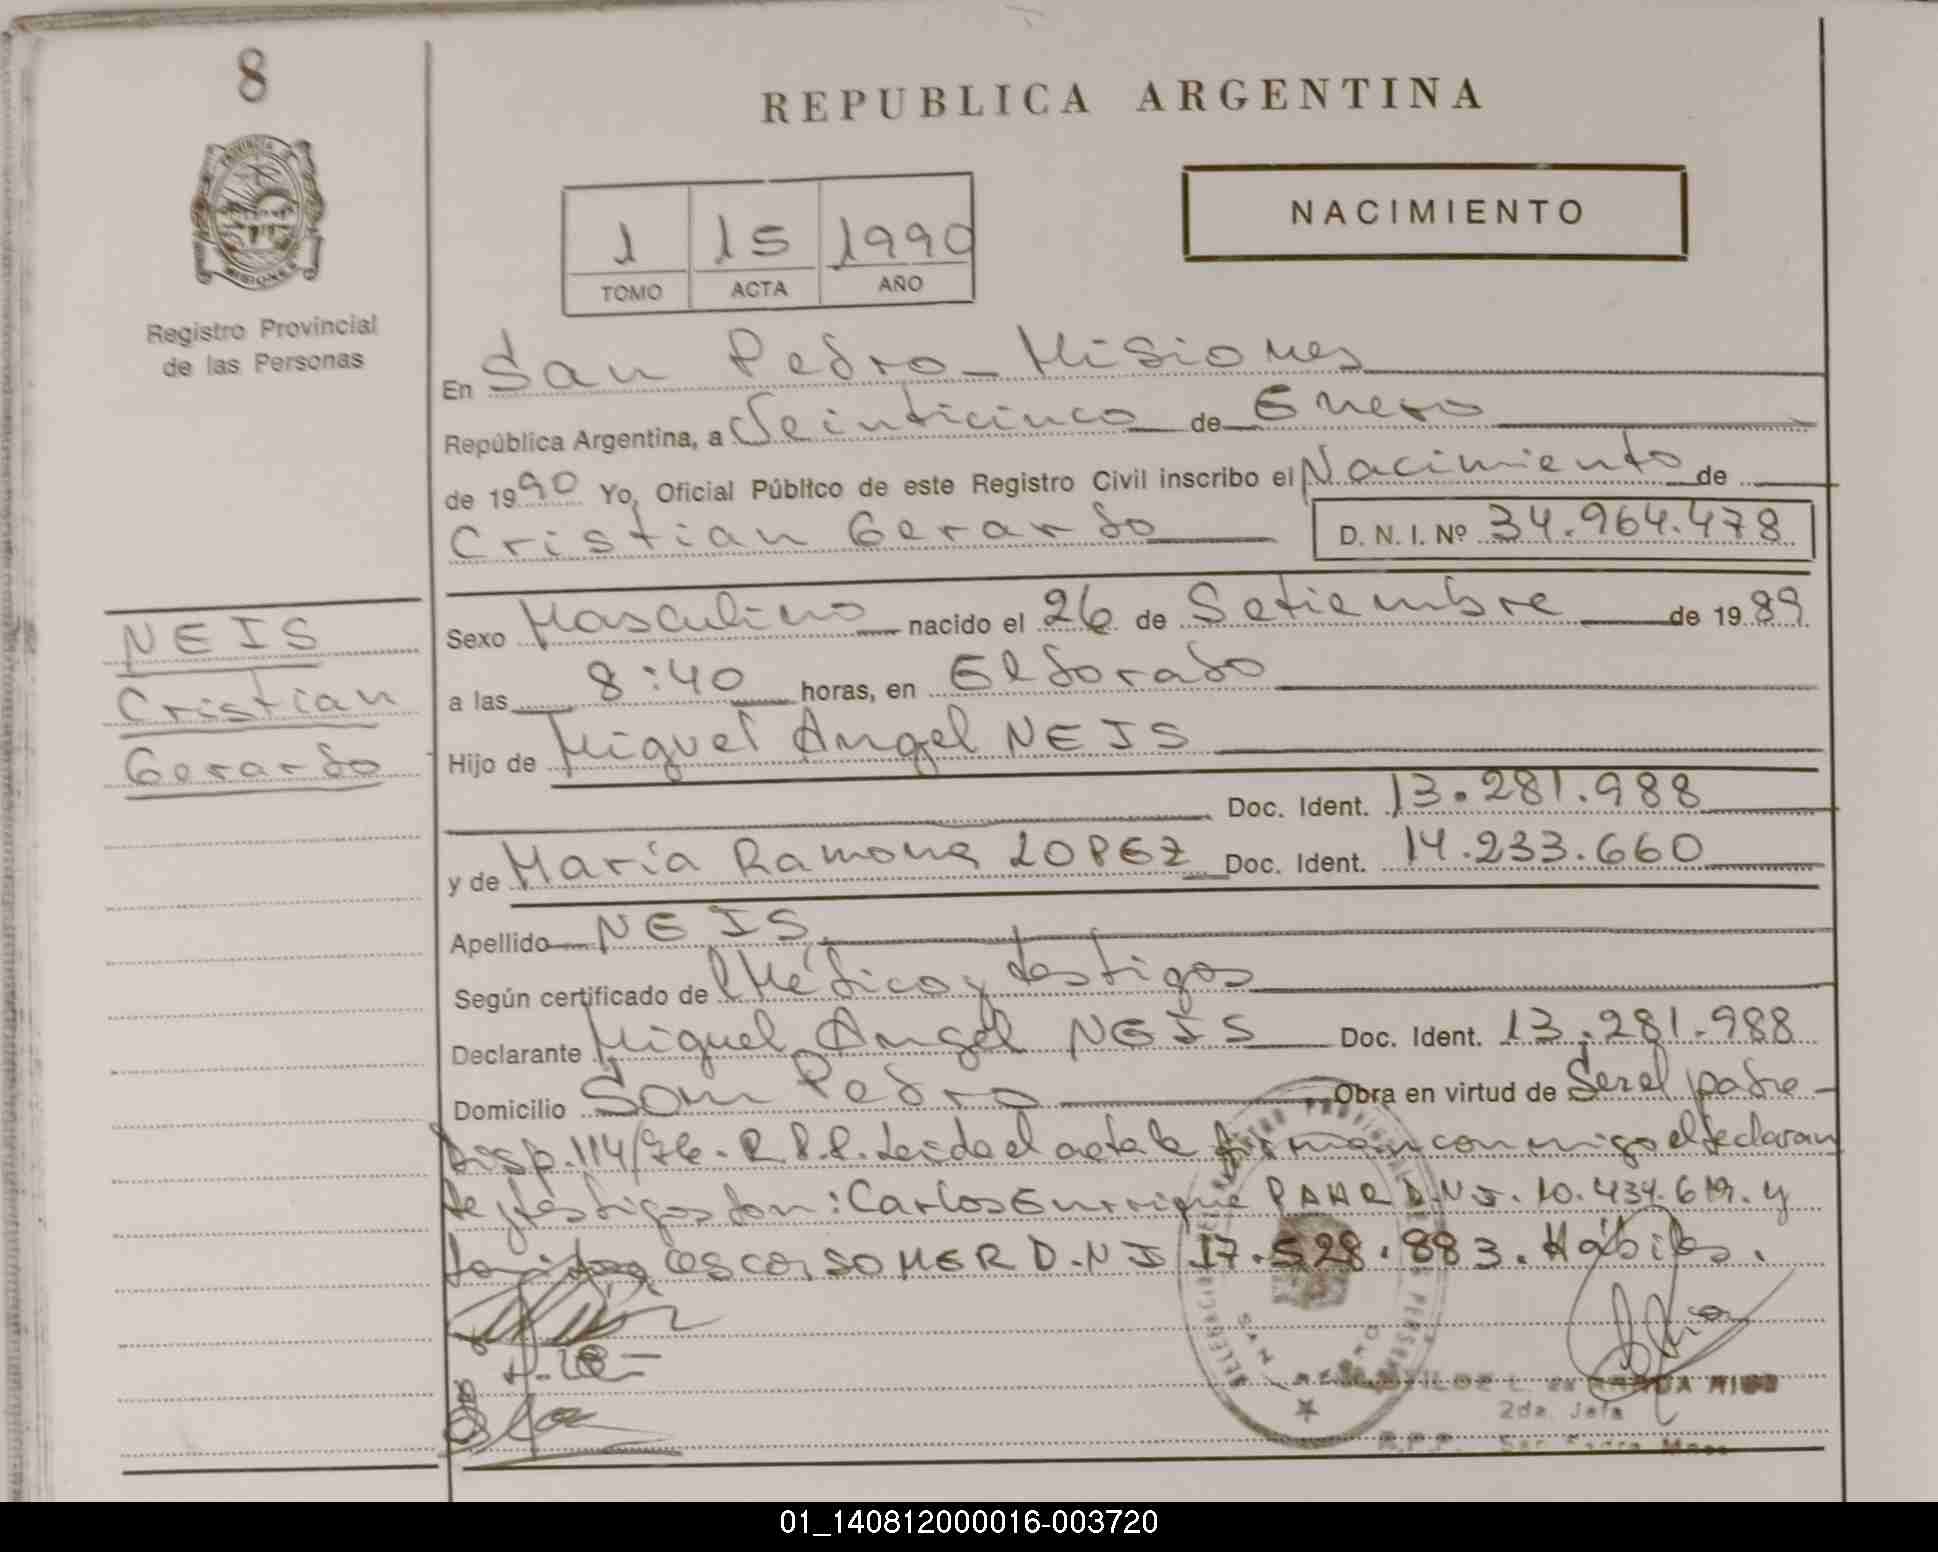 8
REPUBLICA ARGENTINA
PROVINCIA D
MISIONES
Registro Provincial
de las Personas
1 15 1990
TOMO ACTA AÑO
NACIMIENTO
En San Pedro - Misiones
República Argentina, a Veinticinco de Enero
de 1990 Yo, Oficial Público de este Registro Civil inscribo el Nacimiento de
Cristian Gerardo D. N. I. Nº 34.964.478
NEIS
Cristian
Gerardo
Sexo Masculino nacido el 26 de Setiembre de 1989
a las 8:40 horas, en Eldorado
Hijo de Miguel Angel NEIS
Doc. Ident. 13.281.988
y de María Ramona LOPEZ Doc. Ident. 14.233.660
Apellido NEIS
Según certificado de Médico y testigos
Declarante Miguel Angel NEIS Doc. Ident. 13.281.988
Domicilio San Pedro Obra en virtud de Ser el padre -
Disp. 114/76. R.P.P. Leida el acta la firman conmigo el declaran
te y testigos son: Carlos Enrrique D.N.I. 10.434. y
D.N.I 17.528.883. Hábiles.
SAN PEDRO
2da. Jefa
R.P.P. San Pedro Mnes
01_140812000016-003720